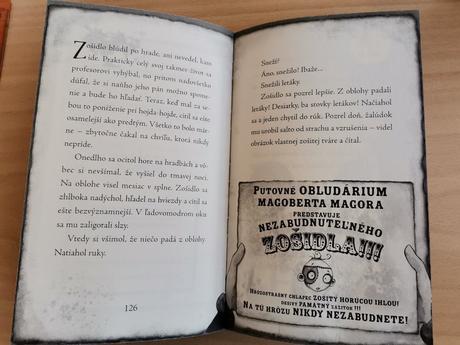 Zošidlo blúdil po hrade, ani nevedel, kam
ide. Prakticky celý svoj takmer život sa
profesorovi vyhýbal, no pritom nadovšetko
dúfal, že si naňho jeho pán možno spome-
nie a bude ho hľadať. Teraz, keď mal za se-
bou to poníženie pri hojdo-hojde, cítil sa ešte
osamelejší ako predtým. Všetko to bolo már-
ne – zbytočne čakal na chvíľu, ktorá nikdy
nepríde.
Onedlho sa ocitol hore na hradbách a vô-
bec si nevšímal, že vyšiel do tmavej noci.
Na oblohe visel mesiac v splne. Zošidlo sa
zhlboka nadýchol, hľadel na hviezdy a cítil sa
ešte bezvýznamnejší. V ľadovomodrom oku
sa mu zaligotali slzy.
Vtedy si všimol, že niečo padá z oblohy.
Natiahol ruky.
126
Sneží!
Áno, snežilo! Ibaže...
Snežili letáky.
Zošidlo sa pozrel lepšie. Z oblohy padali
letáky! Desiatky, ba stovky letákov! Načiahol
sa a jeden chytil do rúk. Pozrel doň, žalúdok
mu urobil salto od strachu a vzrušenia – videl
obrázok vlastnej zošitej tváre a čítal.
PUTOVNÉ OBLUDÁRIUM
MAGOBERTA MAGORA
PREDSTAVUJE
NEZABUDNUTEĽNÉHO
ZOŠIDLA!!!
HRÔZOSTRAŠNÝ CHLAPEC ZOŠITÝ HORÚCOU IHLOU!
DESIVÝ PAMÄTNÝ ZÁŽITOK!!!
NA TÚ HRÔZU NIKDY NEZABUDNETE!